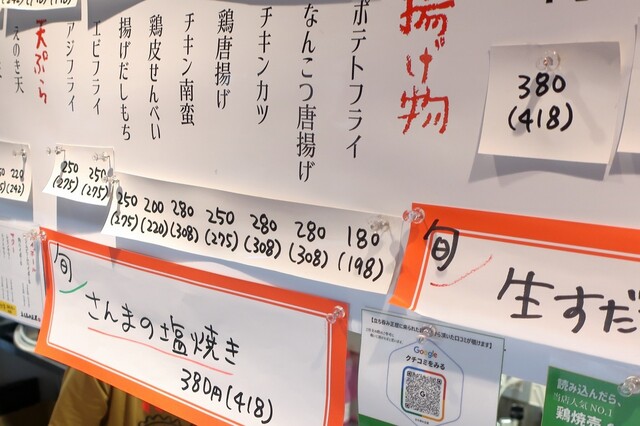 380
(418)
揚げ物
ポテトフライ
なんこつ唐揚げ
チキンカツ
鶏唐揚げ
チキン南蛮
鶏皮せんべい
揚げだしもち
エビフライ
アジフライ
天ぷら
えのき天
180
(198)
280
(308)
280
(308)
250
(275)
280
(308)
200
(220)
250
(275)
250
(275)
250
(275)
220
(242)
旬
生すだ
旬
さんまの塩焼き
380円(418)
Google
クチコミをみる
読み込んだら、
当店人気NO.1
鶏焼売